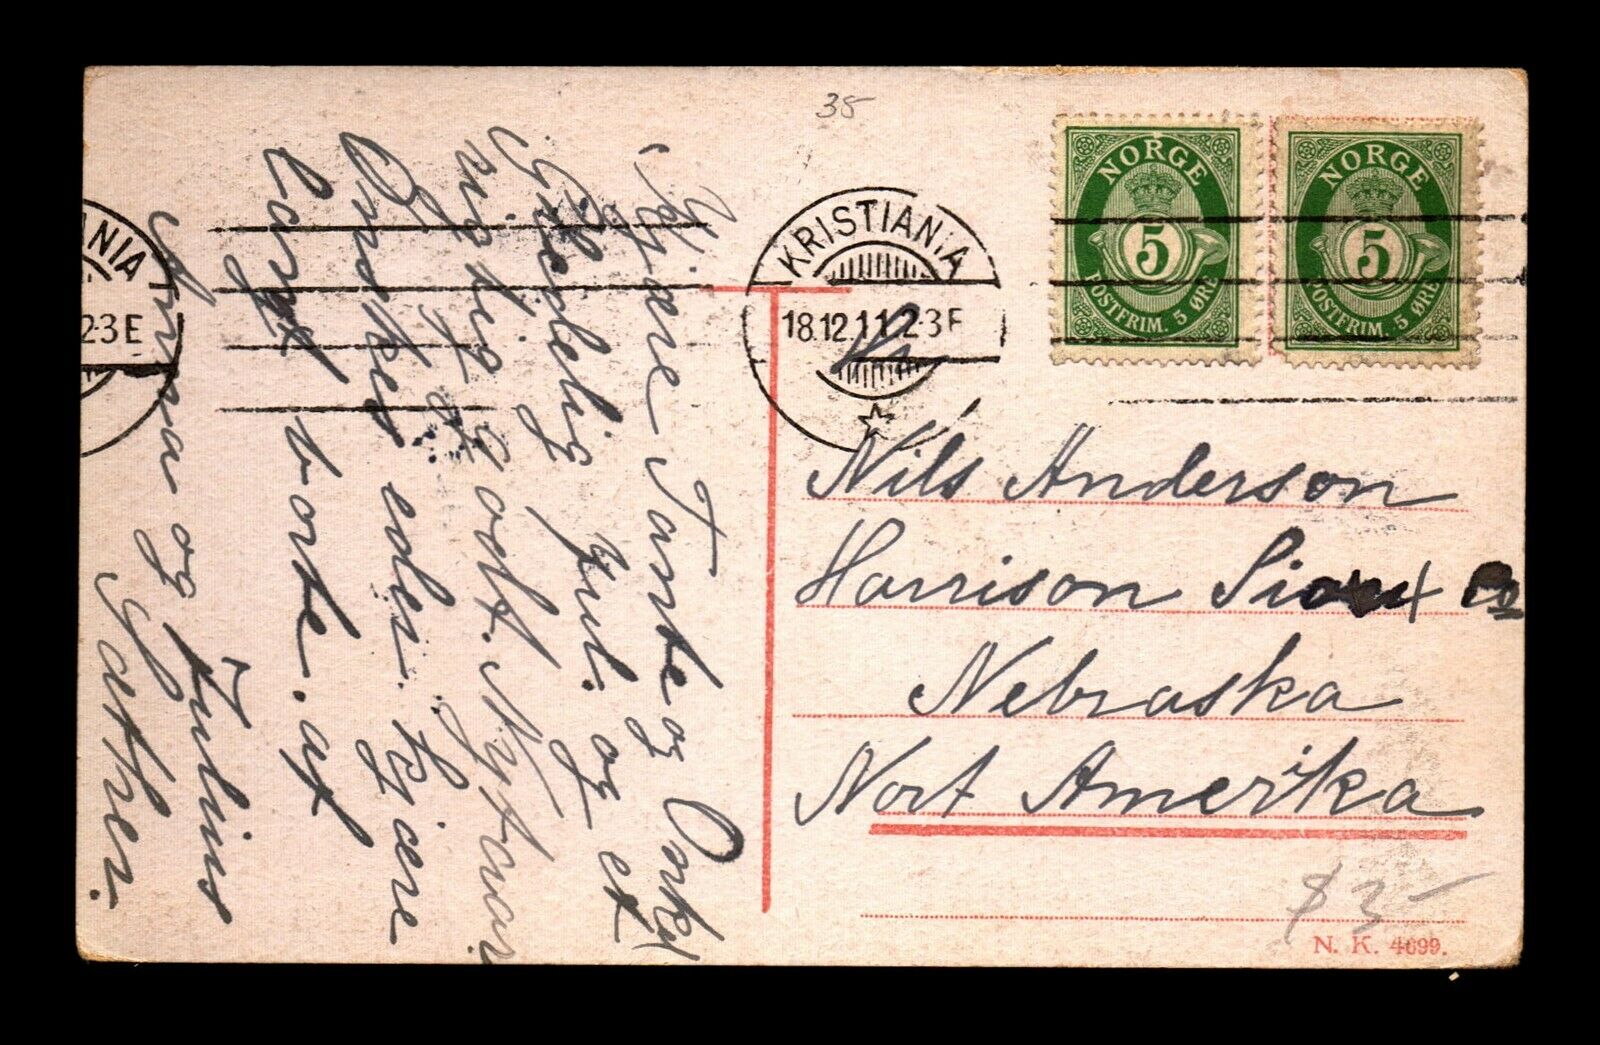 Kjære Tante og Onkel
Gledelig Jul. og et
rigtig godt. Nytaar
Ønskes eder. kjære
langt borte. af
Julius
Anna og
35
KRISTIANIA
18.12.11 2-3 E
NIA
2-3 E
NORGE
5
POSTFRIM. 5 ØRE
NORGE
5
POSTFRIM. 5 ØRE
Nils Anderson
Harrison Sioux Co
Nebraska
Nort Amerika
$ 3-
N. K. 4699.